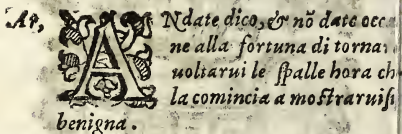 At, ANdate dico, & nõ date occa
ne alla fortuna di tornar
uoltarui le ſpalle hora ch
la comincia a moſtraruiſi
benigna.